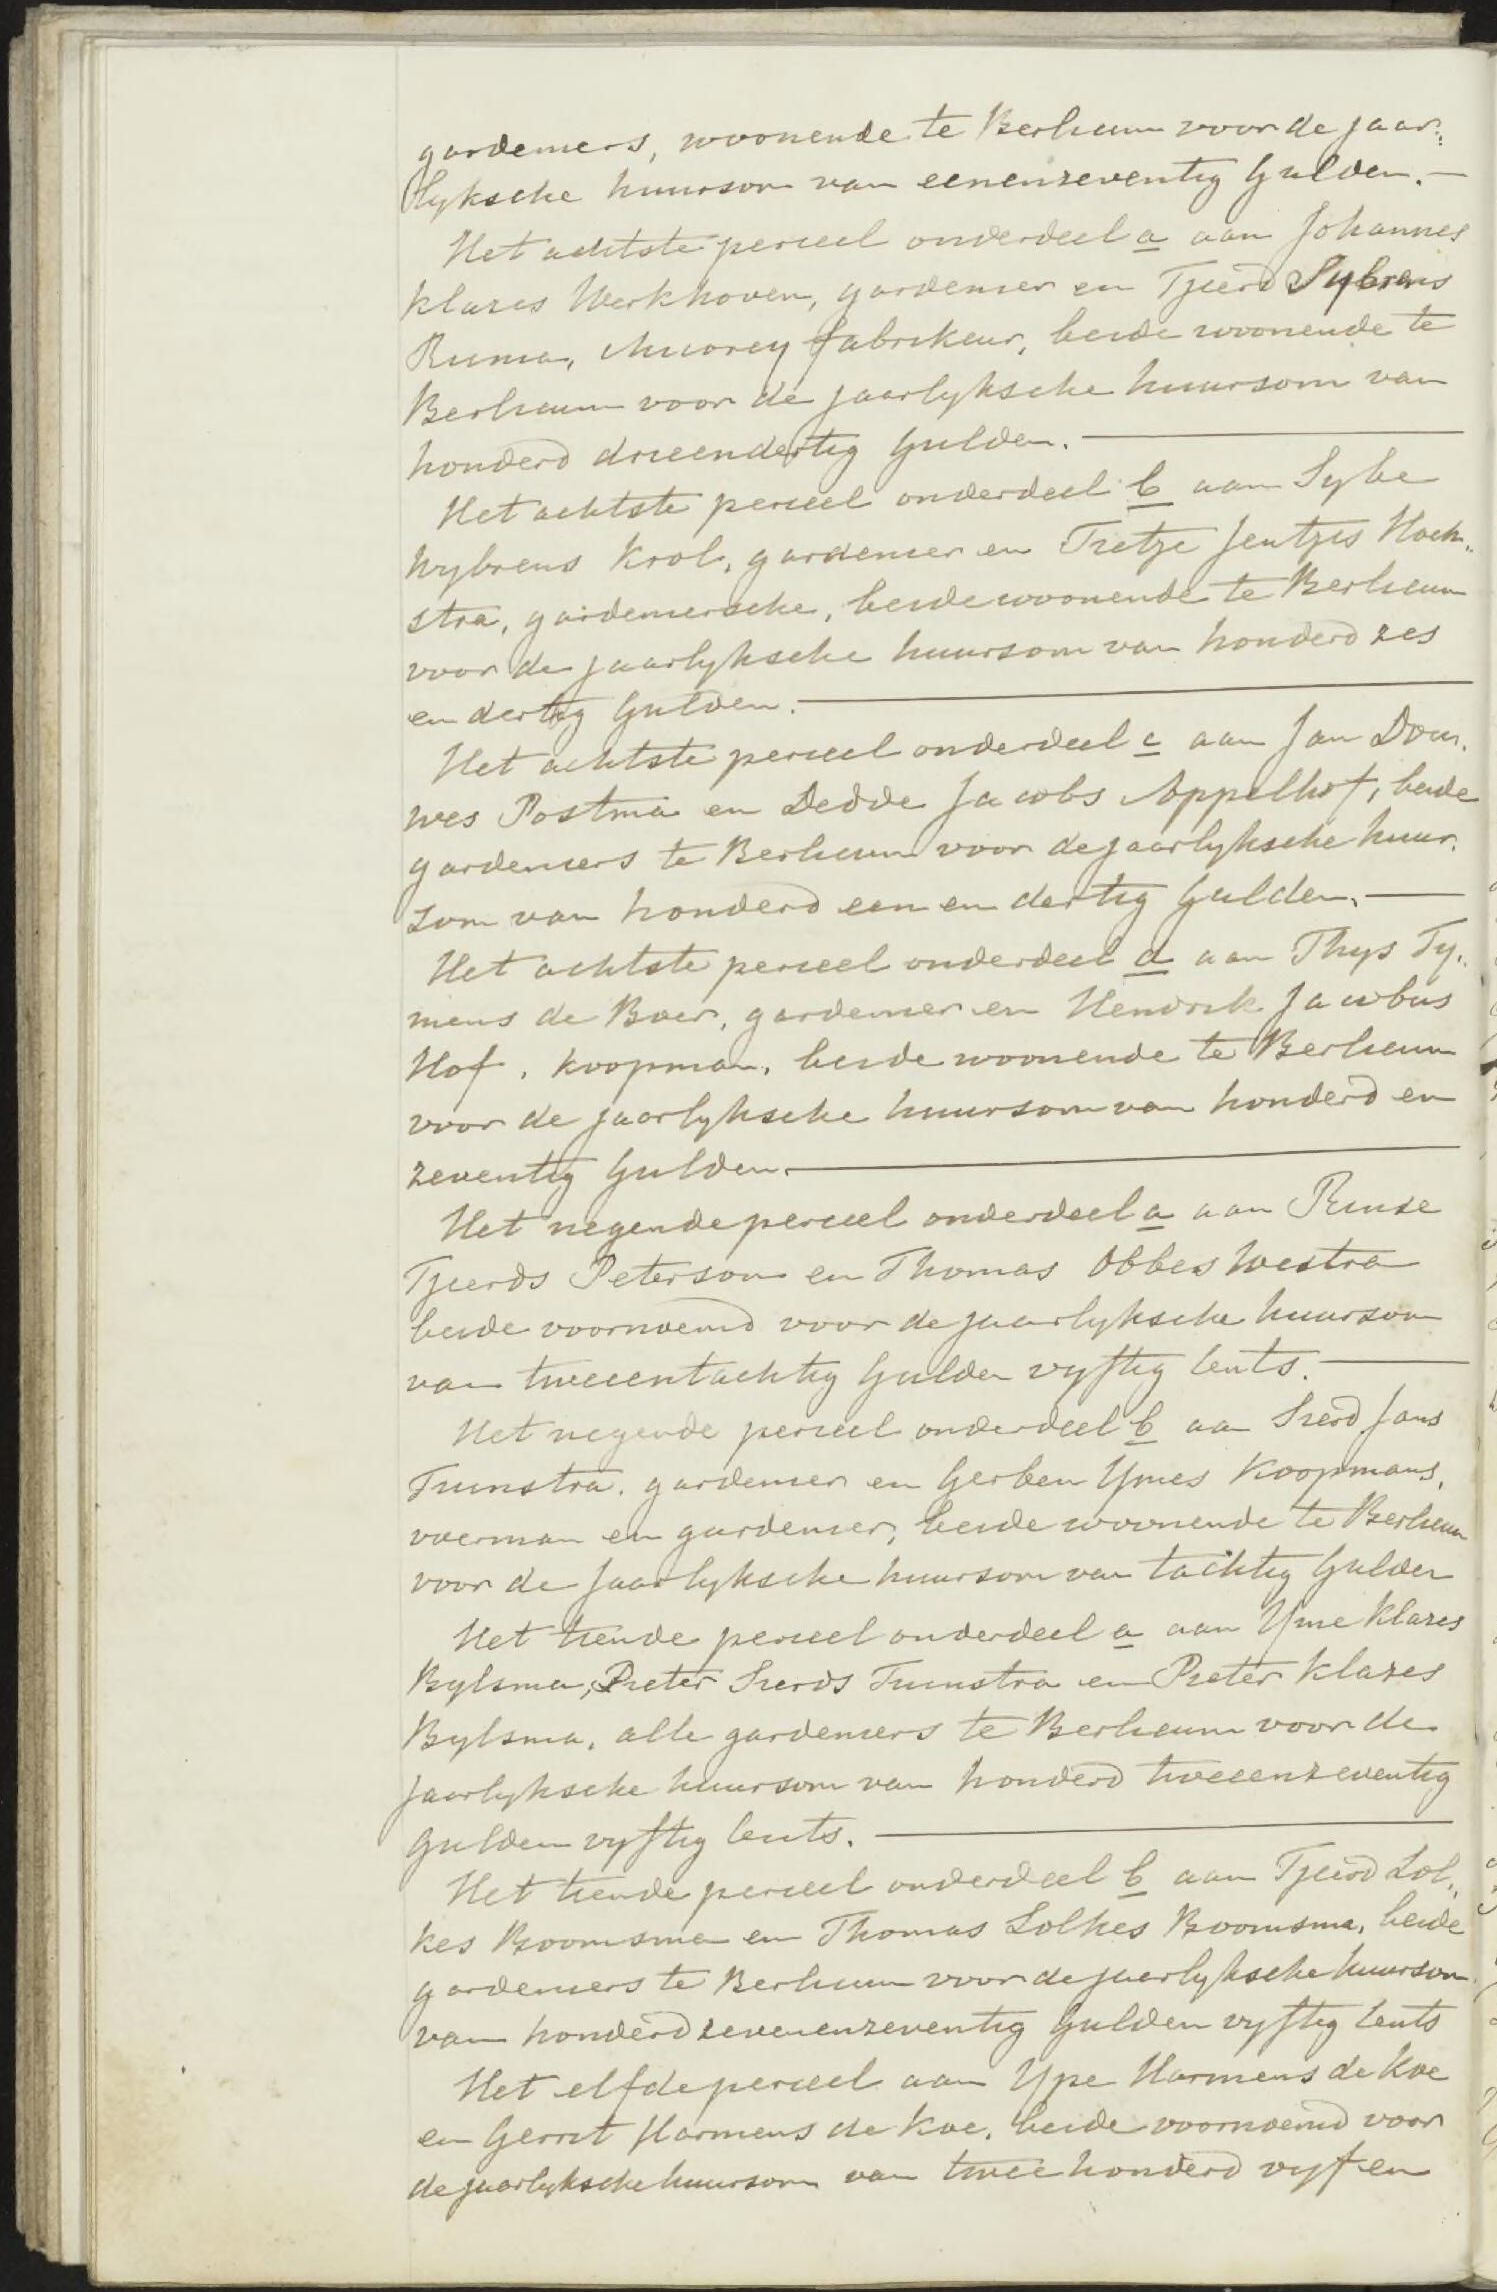 gardeniers, woonende te Berlicum voor de jaar„
lyksche huursom van eenenzeventig Gulden.—
Het achtste perceel onderdeel a aan Johannes
Klazes Werkhoven, gardenier en Tjeerd Sybrens
Ruma, chicorey fabrikeur, beide woonende te
Berlicum voor de jaarlyksche huursom van
honderd drieendertig Gulden.—
Het achtste perceel onderdeel b aan Sybe
Wybrens Krol, gardenier en Tretje Jentjes Hoek„
stra, gardeniersche, beide woonende te Berlicum
voor de jaarlyksche huursom van honderd zes
en dertig Gulden.—
Het achtste perceel onderdeel c aan Jan Dou„
wes Postma en Dedde Jacobs Appelhof, beide
gardeniers te Berlicum voor de jaarlyksche huur„
som van honderd een en dertig Gulden.—
Het achtste perceel onderdeel d aan Thys Ty„
mens de Boer, gardenier en Hendrik Jacobus
Hof, koopman, beide woonende te Berlicum
voor de jaarlyksche huursom van honderd en
zeventig Gulden.—
Het negende perceel onderdeel a aan Rinse
Tjeerds Peterson en Thomas Obbes Westra
beide voornoemd voor de jaarlyksche huursom
van tweeentachtig Gulden vyftig Cents.—
Het negende perceel onderdeel b aan Sierd Jans
Tuinstra, gardenier en Gerben Ymes Koopmans,
voerman en gardenier, beide woonende te Berlicum
voor de jaarlyksche huursom van tachtig Gulden
Het tiende perceel onderdeel a aan Yme Klazes
Bylsma, Pieter Sierds Tuinstra en Pieter Klazes
Bylsma, alle gardeniers te Berlicum voor de
jaarlyksche huursom van honderd tweeenzeventig
Gulden vyftig Cents.—
Het tiende perceel onderdeel b aan Tjeerd Lol„
kes Boomsma en Thomas Lolkes Boomsma, beide
gardeniers te Berlicum voor de jaarlyksche huursom
van honderd zevenenzeventig Gulden vyftig Cents
Het elfde perceel aan Ype Harmens de Koe
en Gerrit Harmens de Koe, beide voornoemd voor
de jaarlyksche huursom van twee honderd vyf en